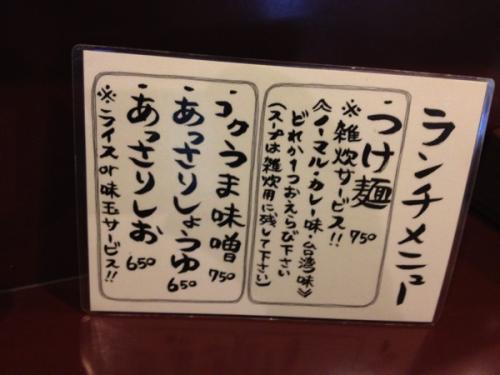 ランチメニュー
・つけ麺 750
※雑炊サービス!!
《イーマル・カレー味・台湾味》
どれか1つおえらび下さい
(スープは雑炊用に残して下さい)
・コクうま味噌 750
・あっさりしょうゆ 650
・あっさりしお 650
※ライスor味玉サービス!!